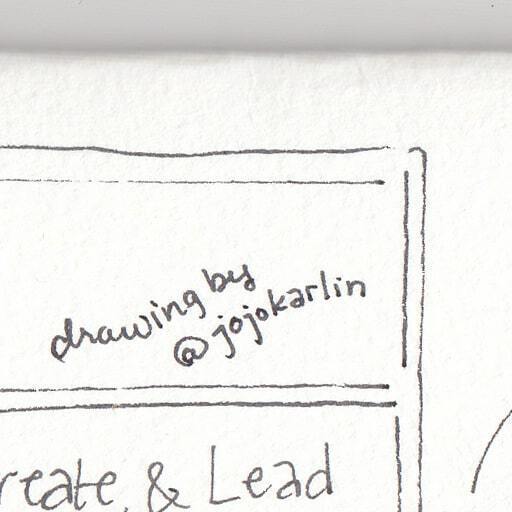 drawing by
@jojokarlin
reate & Lead